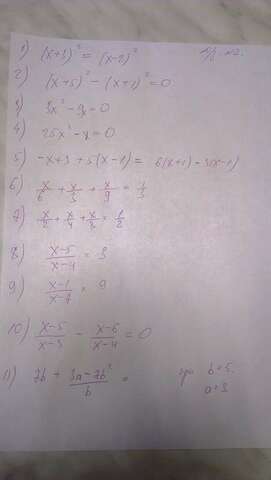 1) (x+3)² = (x-2)²
2) (x+5)² - (x+1)² = 0
3) 3x² - 9x = 0
4) 25x² - x = 0
5) -x+3+5(x-1) = 6(x+1) - 3(x-1)
6) x/6 + x/3 + x/9 = 1/3
7) x/2 + x/4 + x/3 = 1/2
8) x-5/x-4 = 3
9) x-1/x-7 = 9
10) x-5/x-3 - x-6/x-4 = 0
11) 7b + 3a-7b²/b = при b=5.
a=3